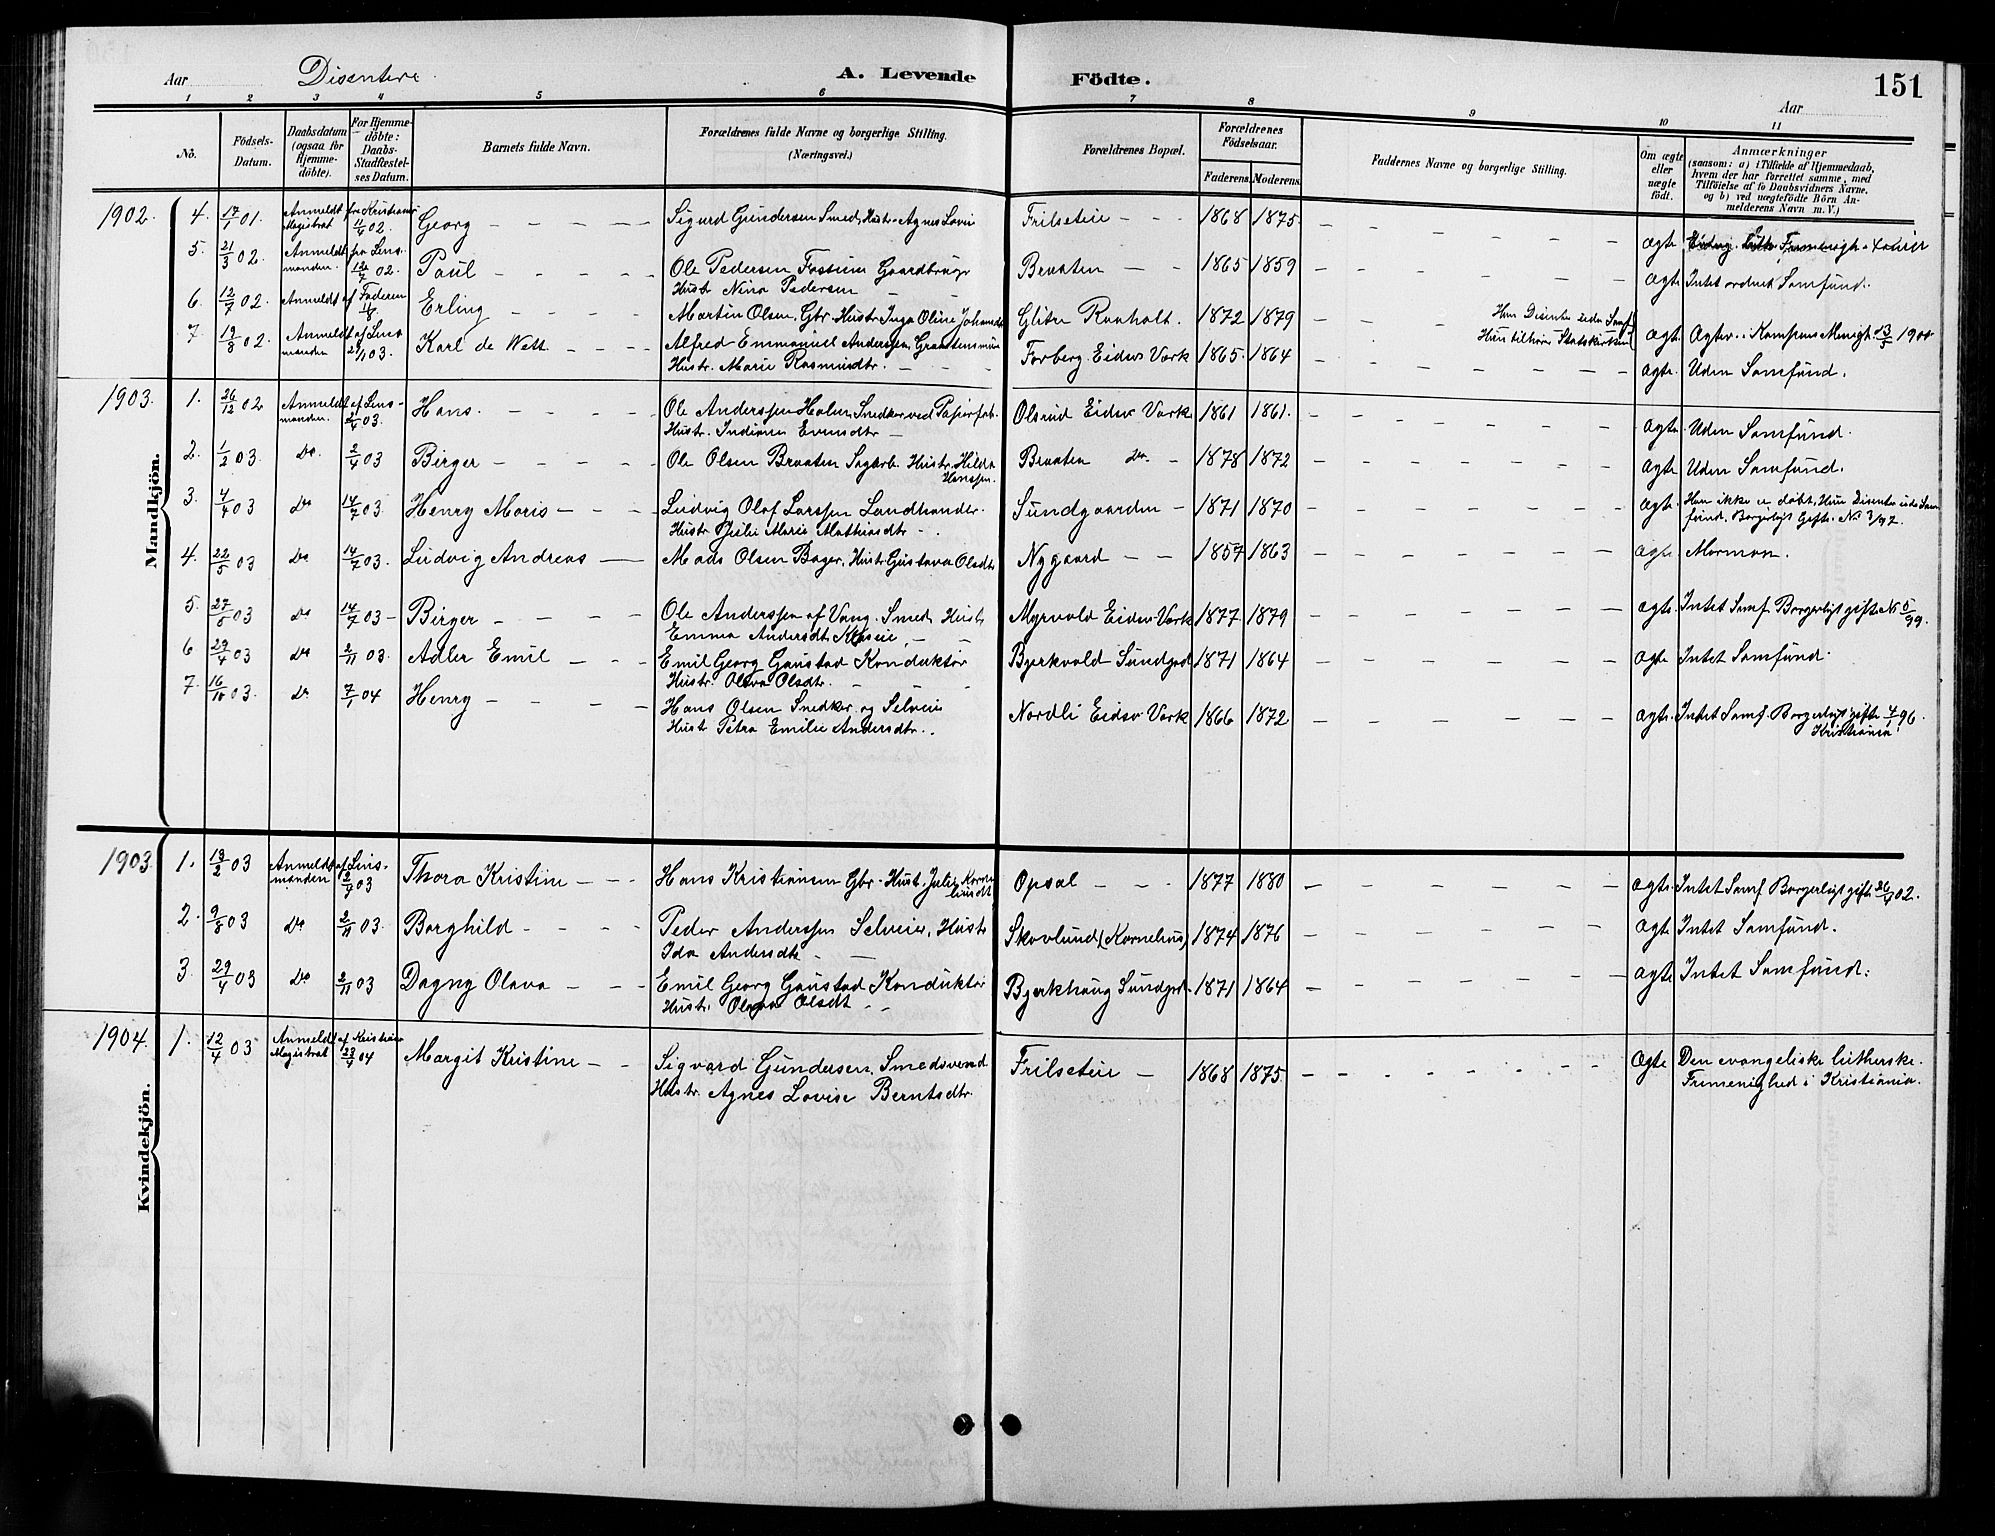 Aar Disentere. A. Levende Födte. 151
Aar
1 2 3 4 5 6 7 8 9 10 11
No. Födsels-Datum. Daabsdatum (ogsaa for Hjemme-döbte). For Hjemme-döbte: Daabs-Stadfæstel-ses Datum. Barnets fulde Navn. Forældrenes fulde Navne og borgerlige Stilling. (Næringsvei.) Forældrenes Bopæl. Forældrenes Födselsaar. Faderens. Moderens. Faddernes Navne og borgerlige Stilling. Om ægte eller uægte födt. Anmærkninger (saasom: a) i Tilfælde af Hjemmedaab, hvem der har forrettet samme, med Tilföielse af to Daabsvidners Navne, og b) ved uægtefödte Börn Anmelderens Navn m. V.)
Mandkjön.
1902. 4. 17/7 01. Anmeldt fra Kristiania Magistrat 11/4 02. Georg – – – – Sigurd Gundersen Smed, Hustr. Agnes Lovise Frilseteie – – 1868 1875 – – – – – – ægte
5. 21/3 02. Anmeldt fra Lensmanden. 02. Paul – – – – – Ole Pedersen Fossum Gaardbruger
Hustr. Nina Pedersen – – Braaten – – 1865 1859 – – – – – – ægte Intet ordnet Samfund.
6. 12/7 02. Anmeldt af Faderen Erling – – – – Martin Olsen, Gbr. Hustr. Inga Oline Johansdt. Glitre Raaholt. 1872 1879 – – – Han Disenter uden Samf.
Hun tilhører Statskirken ægte 1900
7. 19/8 02. Anmeldt af Lensmanden 03. Karl de Wett – – – Alfred Emmanuel Anderssen, Graastensmurer
Hustr. Marie Rasmusdtr. – – – Forberg. Eidsv. Værk 1865. 1864 – – – – – – ægte. Uden Samfund.
1903. 1. 26/12 02 Anmeldt af Lensmanden. 2/4 03. Hans. – – – – Ole Anderssen Holm, Snedker ved Papirfab.
Hustr. Indiana Evensdtr – Olsrud Eidsv Værk 1861 1861. – – – – – – ægte. Uden Samfund.
2. 1/2 03. Do. 2/4 03 Birger – – – – – Ole Olsen Braaten Sagarb. Hustr. Hilda
Hanssen. Braaten Do. – 1878 1872 – – – – – – ægte Uden Samfund.
3. 4/4 03 Do 14/7 03. Henry Moris – – – Ludvig Olaf Larssen Landhandler.
Hustr Marie Mathisdtr – . Sundgaarden – 1871 1870 – – – – – – ægte. Han ikke er døbt, Hun Disenter uden Samfund. Borgerligt Gifte. No 3/97.
4. 22/5 03 Do 14/7 03. Ludvig Andreas — Mads Olsen Bager, Hustr. Gustava Olsdtr Nygaard – – 1857 1863 – – – – – – ægte Mormon.
5. 27/5 03 Do 14/7 03 – Birger – – – – Ole Anderssen af Vang. Smed. Hustr.
Emma Andersdtr. – – Myrvold Eidsv Værk 1877 1879 – – – – – – ægte. Intet Samf. Borgerligt gift No 5/99.
6 29/4 03 Do 2/11 03. Adler Emil – – – Emil Georg Gaustad Konduktør
Hustr. Olava Olsdtr. – – Bjerkvold Sundgrd 1871 1864 – – – – – – ægte Intet Samfund.
7. 16/10 03. Do 7/1 04 Henry – – – – – Hans Olsen Snedker og Selveier
Hustr Petra Emilie Andersdtr. . Nordli Eidsv Værk 1866 1872 – – – – – – ægte. Intet Samf. Borgerligt gifte 96.
Kristiania.
Kvindekjön.
1903. 1. 19/2 03 Anmeldt af Lensmanden 03 Thora Kristine – – – Hans Kristiansen Gbr. Hustr. Julie Korneliusdt Opsal – – – 1877 1880 – – – – – – ægte. Intet Samf. Borgerligt gift 02.
2. 9/8 03 Do 2/11 03. Borghild – – – – Peder Anderssen Selveier, Hustr.
Ida Andersdtr. – — Skovlund (Kornelius) 1874 1876 – – – – – – ægte Intet Samfund.
3. 29/4 03 Do 2/11 03 Dagny Olava – – Emil Georg Gaustad Konduktør
Hustr. Olava Olsdt – – Bjerkhaug Sundgrd – 1871 1864 – – – – – – ægte Intet Samfund.
1904. 1. 12/4 03 Anmeldt af Kristiania Magistrat 04 Margit Kristine – – Sigvard Gundersen, Smedsvend
Hustr. Agnes Lovise Berntsdtr. Frilseteie – 1868 1875 – – – – – – – ægte Den evangeliske lutherske
Frimenighed i Kristiania.